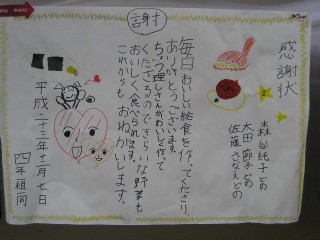 感謝状
森谷純子どの
太田節子どの
佐藤さなえどの
謝
毎日おいしい給食を作ってくださり、
ありがとうございます。
ちょう理しさんがおいしく作って
くださるのできらいな野菜も
おいしく食べられます。
これからもおねがいします。
平成二十三年十二月七日
四年組同